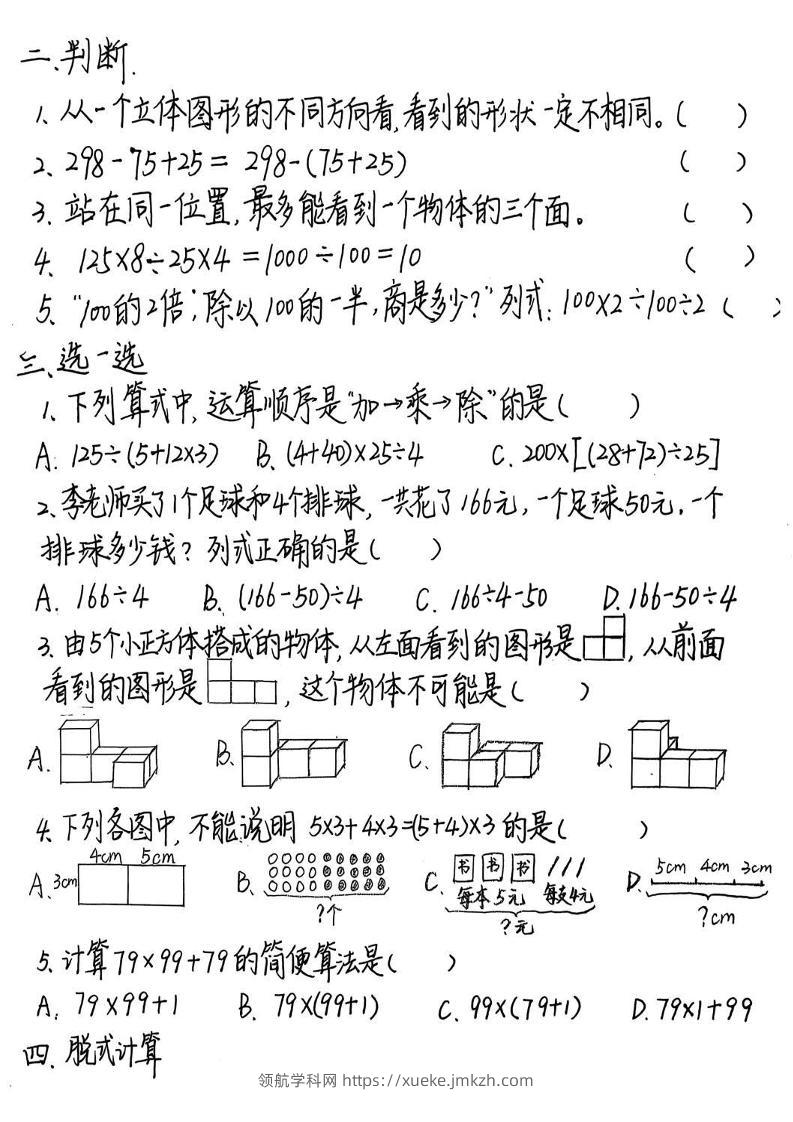 二、判断.
1. 从一个立体图形的不同方向看,看到的形状一定不相同。( )
2. 298-75+25= 298-(75+25) ( )
3. 站在同一位置,最多能看到一个物体的三个面。 ( )
4. 125×8÷25×4 =1000÷100=10 ( )
5. "100的2倍,除以100的一半,商是多少?"列式: 100×2÷100÷2 ( )
三、选一选
1. 下列算式中, 运算顺序是"加→乘→除"的是( )
A. 125÷(5+12×3) B. (4+40)×25÷4 C. 200×[(28+72)÷25]
2. 李老师买了1个足球和4个排球, 一共花了166元, 一个足球50元. 一个
排球多少钱? 列式正确的是( )
A. 166÷4 B. (166-50)÷4 C. 166÷4-50 D. 166-50÷4
3. 由5个小正方体搭成的物体, 从左面看到的图形是 , 从前面
看到的图形是 , 这个物体不可能是( )
A. B. C. D.
4. 下列各图中, 不能说明 5×3+4×3=(5+4)×3 的是( )
4cm 5cm 书 书 书 5cm 4cm 3cm
A. 3cm B. C. 每本5元 每支4元 D.
?个 ?元 ?cm
5. 计算79×99+79的简便算法是( )
A. 79×99+1 B. 79×(99+1) C. 99×(79+1) D. 79×1+99
四. 脱式计算
领航学科网 https://xueke.jmkzh.com